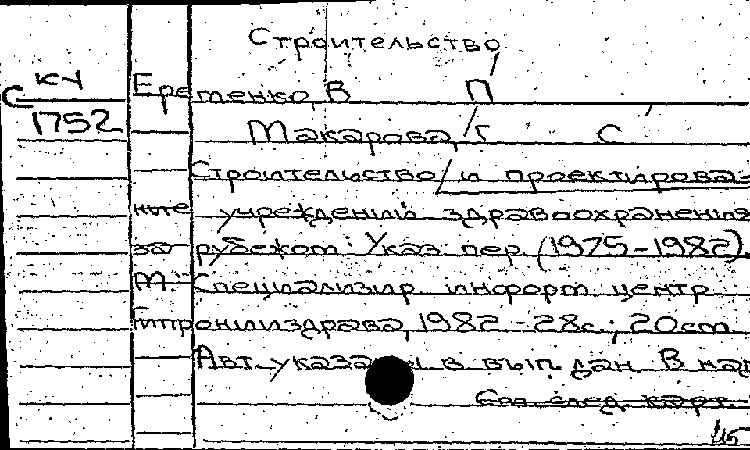 Строительство
КУ
С Еременко, В П
1752
Макарова, Г С
Строительство / и проектирова-
ние учреждений здравоохранения
за рубежом: Указ. пер. (1975-1982).
М.: Специализир. информ. центр
Гипрониииздрава, 1982. - 28с.; 20см
Авт. указаны в вып. дан. В над
См. след. карт.